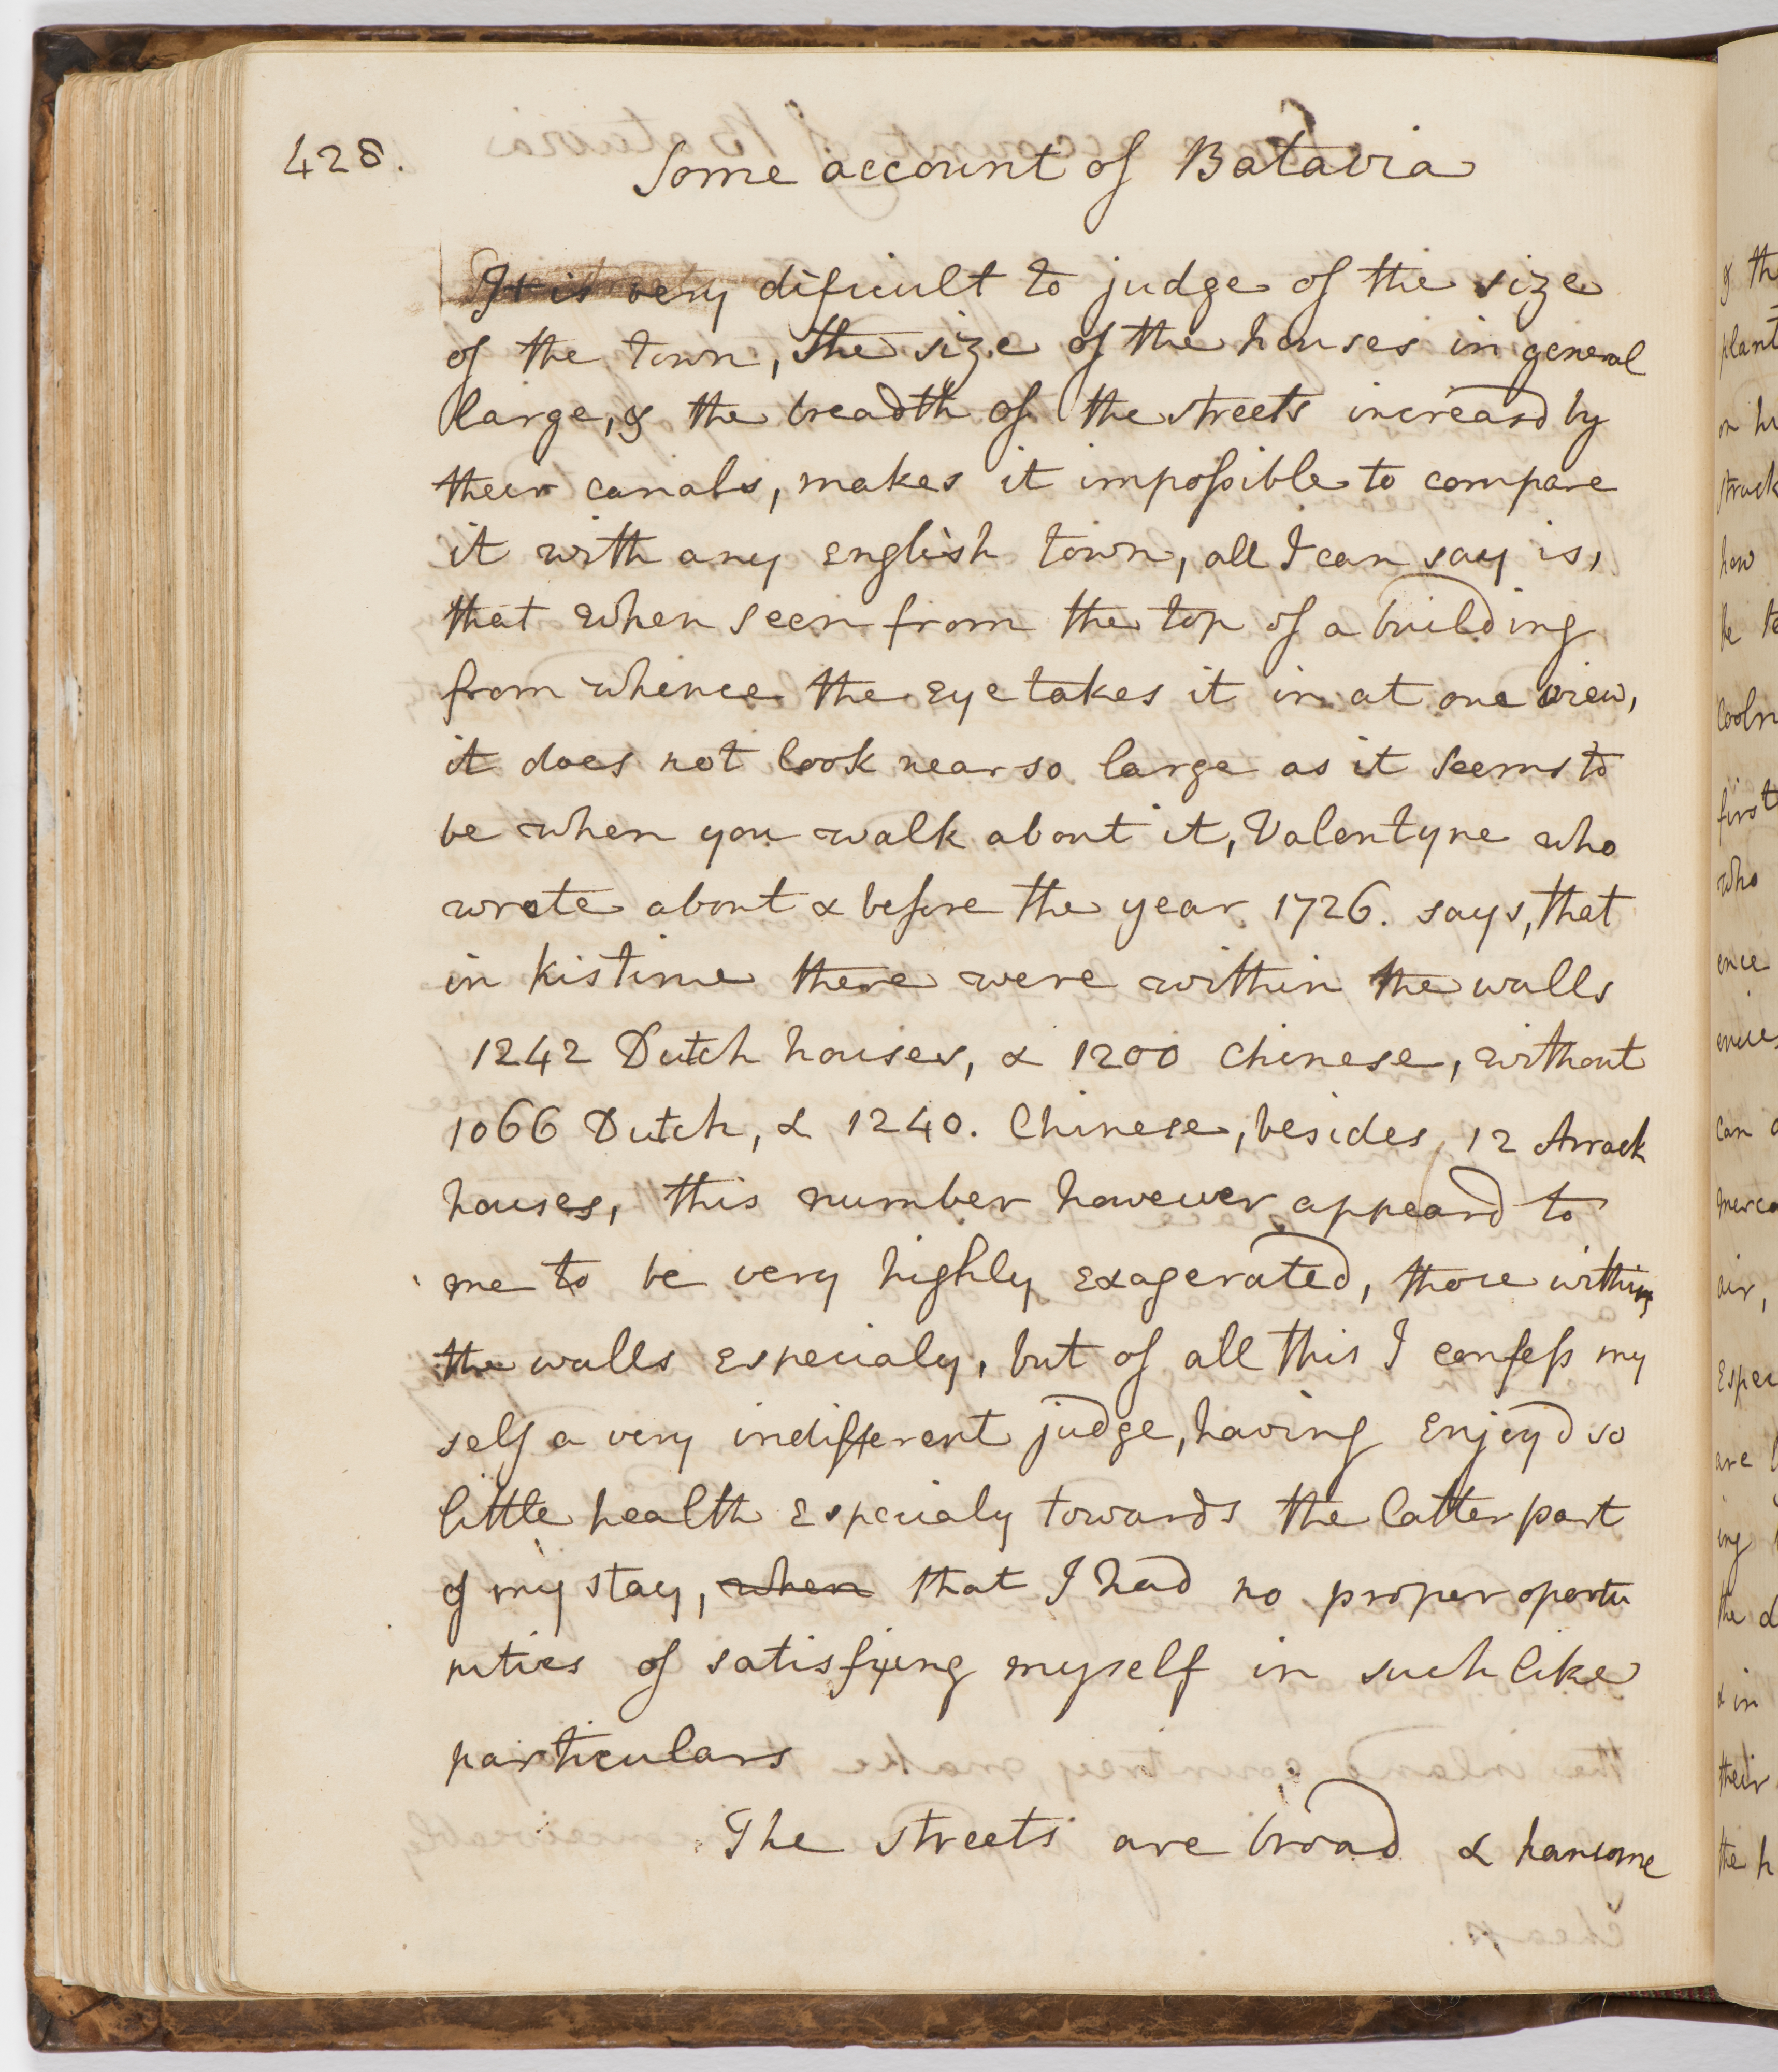 428.
Some account of Batavia
It is very dificult to judge of the size
of the town, the size of the houses in general
large, & the breadth of the streets increasd by
their canals, makes it impossible to compare
it with any english town, all I can say is,
that when seen from the top of a building
from whence the eye takes it in at one view,
it does not look near so large as it seems to
be when you walk about it, Valentyne who
wrote about & before the year 1726. says, that
in his time there were within the walls
1242 Dutch houses, & 1200 Chinese, without
1066 Dutch, & 1240. Chinese, besides 12 Arrack
houses, this number however appeard to
me to be very highly exagerated, those within
the walls especialy, but of all this I confess my
self a very indifferent judge, having enjoyd so
little health especialy towards the latter part
of my stay, when that I had no proper oportu
nities of satisfying myself in such like
particulars
The streets are broad & hansome
& th
plant
on hi
struck
how
be to
Cooln
first
who
ence
can
merca
air,
Especi
are
ing
the d
& in
their
the h